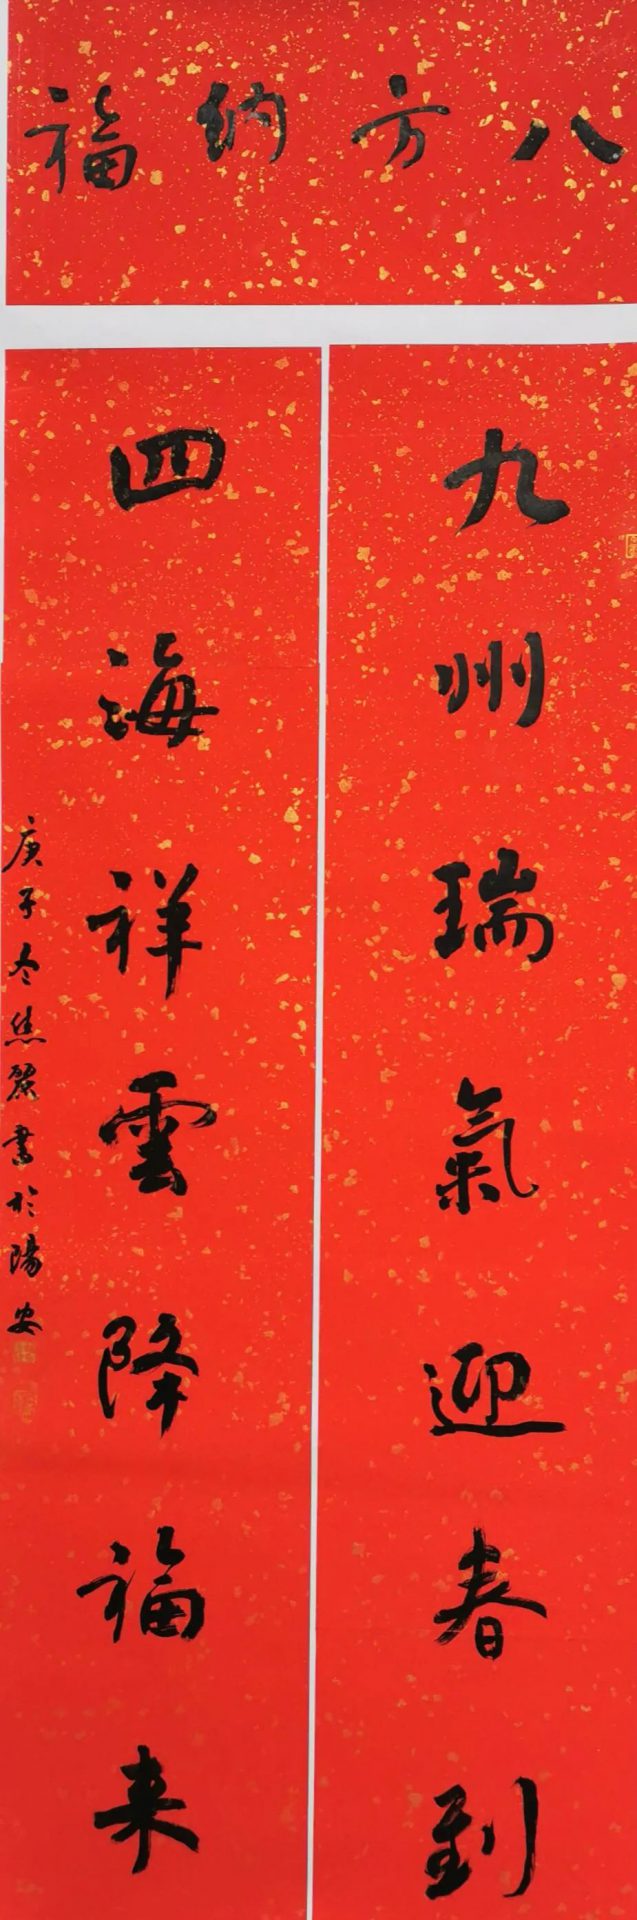 八方纳福
九州瑞氣迎春到
四海祥雲降福来
庚子冬焦麗書於陽安